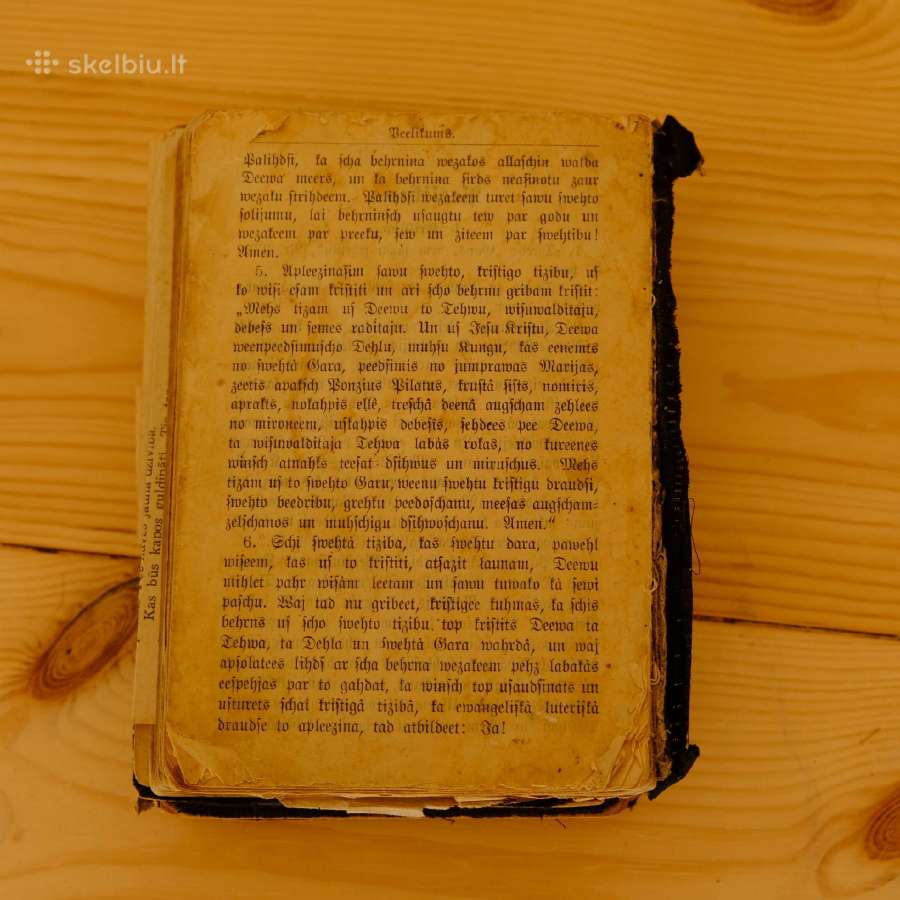 skelbiu.lt
Peelikums.
Palihdſi, ka ſcha behrnina wezakos allaſchin walda
Deewa meers, un ka behrnina ſirds neaſinotu zaur
wezaku ſtrihdeem. Palihdſi wezakeem turet ſawu ſwehto
ſolijumu, lai behrninſch uſaugtu tew par godu un
wezakeem par preeku, ſew un ziteem par ſwehtibu!
Amen.
5. Apleezinaſim ſawu ſwehto, kriſtigo tizibu, uſ
ko wiſi eſam kriſtiti un ari ſcho behrnu gribam kriſtit:
„Mehs tizam uſ Deewu to Tehwu, wiſuwalditaju,
debeſs un ſemes raditaju. Un uſ Jeſu Kriſtu, Deewa
weenpeedſimuſcho Dehlu, muhſu Kungu, kas eenemts
no ſwehtà Gara, peedſimis no jumprawas Marijas,
zeetis apakſch Ponzius Pilatus, kruſtâ ſiſts, nomiris,
aprakts, nokahpis ellê, treſchâ deenâ augſcham zehlees
no mironeem, uſkahpis debeſîs, ſehdees pee Deewa,
ta wiſuwalditaja Tehwa labàs rokas, no kureenes
winſch atnahks teeſat dſihwus un miruſchus. Mehs
tizam uſ to ſwehto Garu, weenu ſwehtu kriſtigu draudſi,
ſwehto beedribu, grehku peedoſchanu, meeſas augſcham=
zelſchanos un muhſchigu dſihwoſchanu. Amen.“
6. Schi ſwehtà tiziba, kas ſwehtu dara, pawehl
wiſeem, kas uſ to kriſtiti, atſazit launam, Deewu
mihlet pahr wiſàm leetam un ſawu tuwako kà ſewi
paſchu. Waj tad nu gribeet, kriſtigee kuhmas, ka ſchis
behrns uſ ſcho ſwehto tizibu top kriſtits Deewa ta
Tehwa, ta Dehla un ſwehtà Gara wahrdâ, un waj
apſolatees lihdſ ar ſcha behrna wezakeem pehz labakàs
eeſpehjas par to gahdat, ka winſch top uſaudſinats un
uſturets ſchai kriſtigâ tizibâ, ka ewangeliſkà luteriſkà
draudſe to apleezina, tad atbildeet: Ja!
jauna dzīvība,
Kas būs kapos guldināti